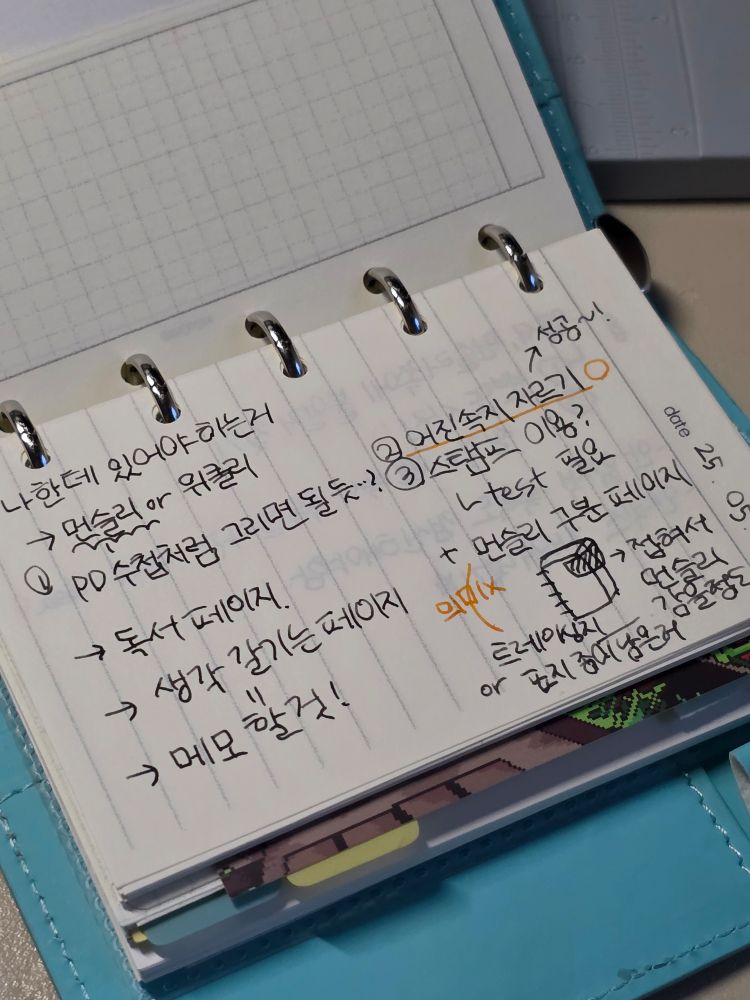 date 25. 05.
나한테 있어야 하는거
→ 먼슬리 or 위클리
① PD 수첩처럼 그리면 될듯..?
→ 독서 페이지.
→ 생각 갈기는 페이지
=
→ 메모 할 것!
→ 성공~!
② 어진속지 자르기 ○
③ 스탬프 이용?
ㄴ test 필요
+ 먼슬리 구분 페이지
→ 접혀서
먼슬리
감을정도
의미X
트레이싱지
or 표지 종이 남은거